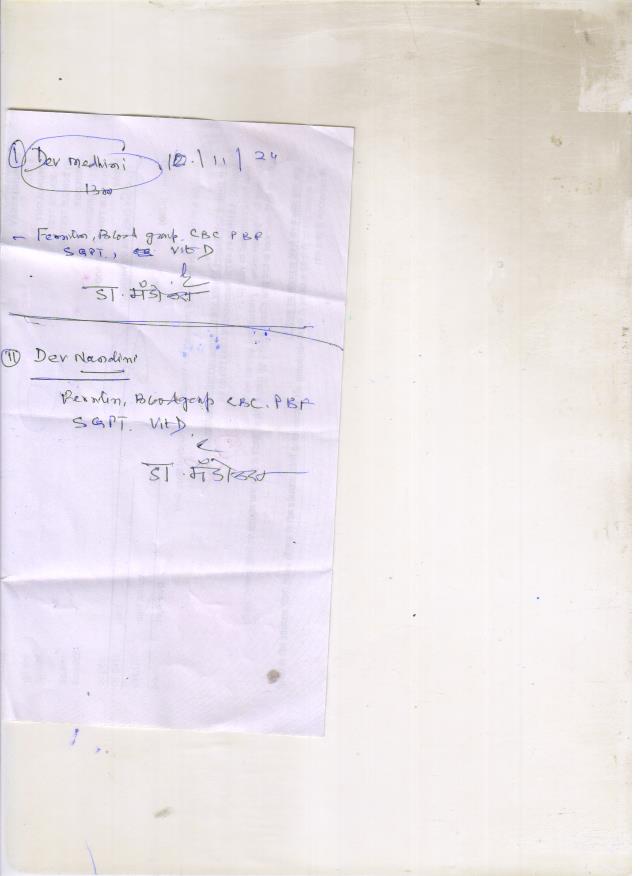 I Dev Medhini 12/11/24
- Ferritin, Blood group, CBC PBF
SGPT, Vit D
डा.
II Dev Nandini
Ferritin, Blood group CBC. PBF
SGPT. Vit D
डा.